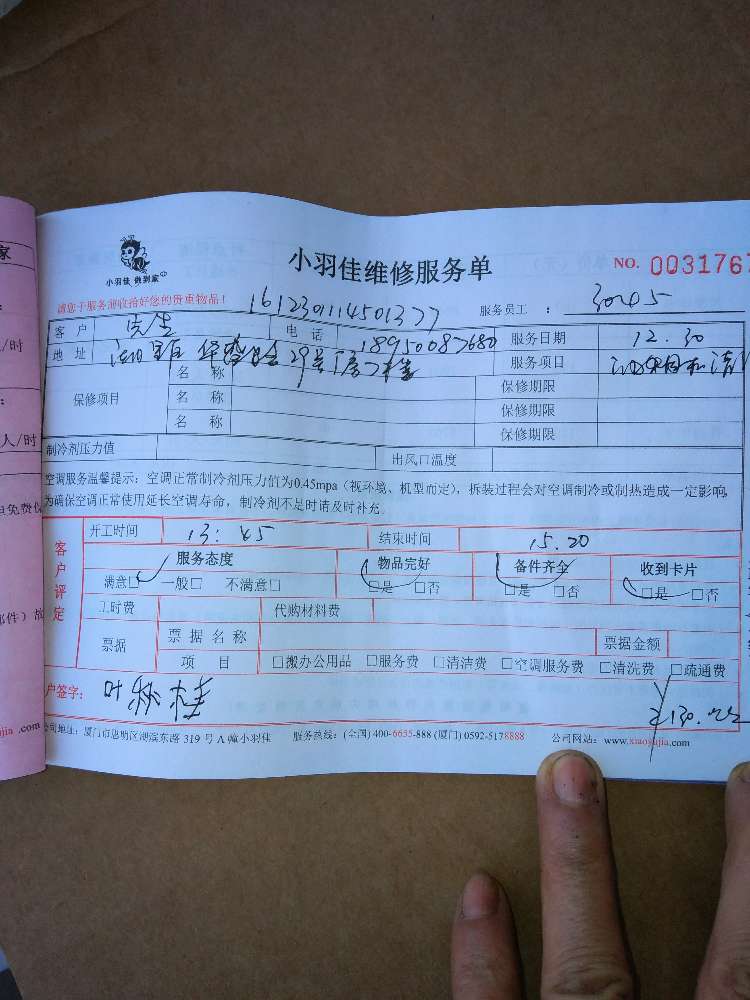 小羽佳 做到家
小羽佳维修服务单
NO. 0031767
请您于服务前收拾好您的贵重物品！
161230114501377
服务员工 ： 30405
客 户 先生 电 话 18950087680 服务日期 12.30
地 址 29号 服务项目
保修项目 名 称 保修期限
名 称 保修期限
名 称 保修期限
制冷剂压力值 出风口温度
空调服务温馨提示：空调正常制冷剂压力值为0.45mpa（视环境、机型而定），拆装过程会对空调制冷或制热造成一定影响，
为确保空调正常使用延长空调寿命，制冷剂不足时请及时补充。
客户评定
开工时间 13:45 结束时间 15.20
服务态度 物品完好 备件齐全 收到卡片
满意□ 一般□ 不满意□ □是 □否 □是 □否 □是 □否
工时费 代购材料费
票据 票 据 名 称 票据金额
项 目 □搬办公用品 □服务费 □清洁费 □空调服务费 □清洗费 □疏通费
户签字：
公司地址：厦门市思明区湖滨东路 319 号 A 幢小羽佳 服务热线：(全国) 400-6655-888 (厦门) 0592-5178888 公司网站：www.xiaoyujia.com
家
/时
人/时
免费
件）故
jia .com